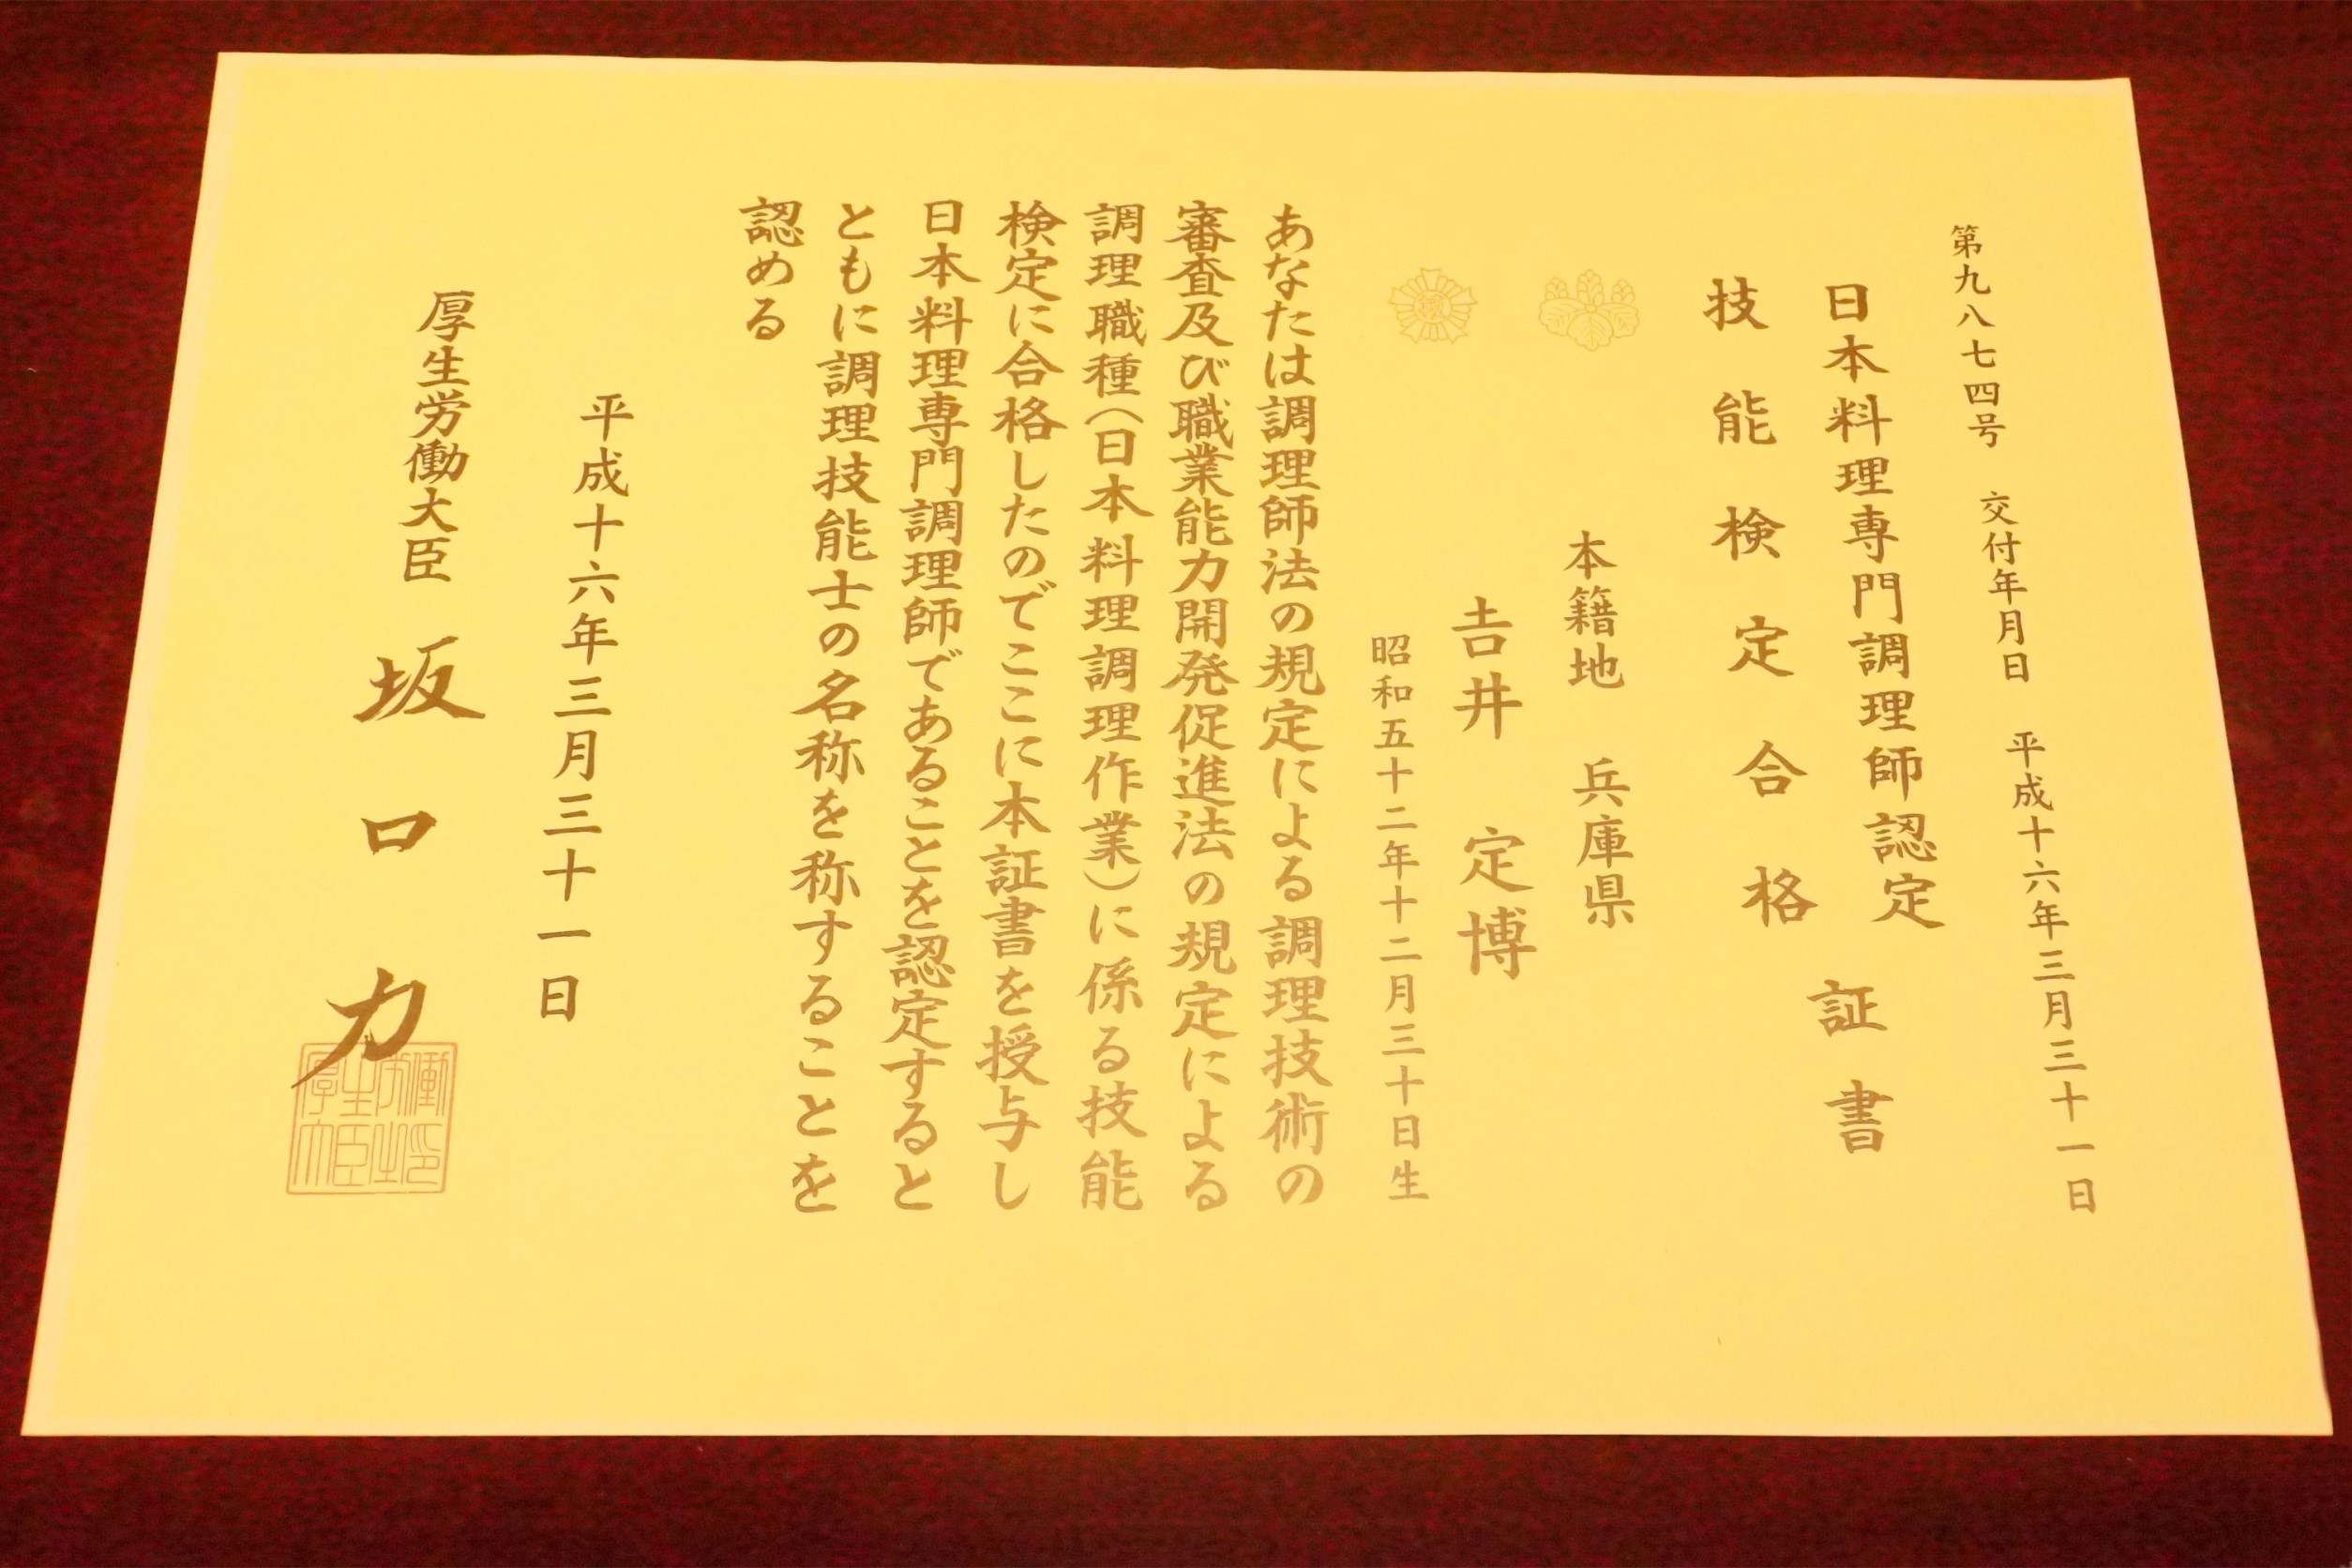 第九八七四号 交付年月日 平成十六年三月三十一日
日本料理専門調理師認定
技能検定合格
証書
本籍地 兵庫県
𠮷井 定博
昭和五十二年十二月三十日生
あなたは調理師法の規定による調理技術の
審査及び職業能力開発促進法の規定による
調理職種(日本料理調理作業)に係る技能
検定に合格したのでここに本証書を授与し
日本料理専門調理師であることを認定すると
ともに調理技能士の名称を称することを
認める
平成十六年三月三十一日
厚生労働大臣 坂口力
厚生労働
大臣之印